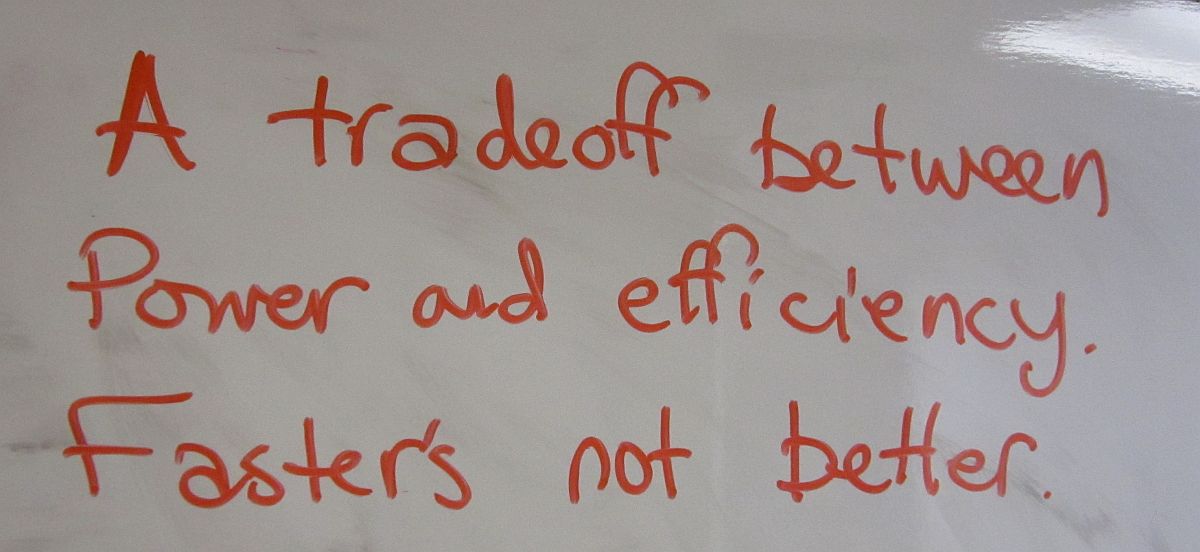 A tradeoff between
Power and efficiency.
Faster's not better.